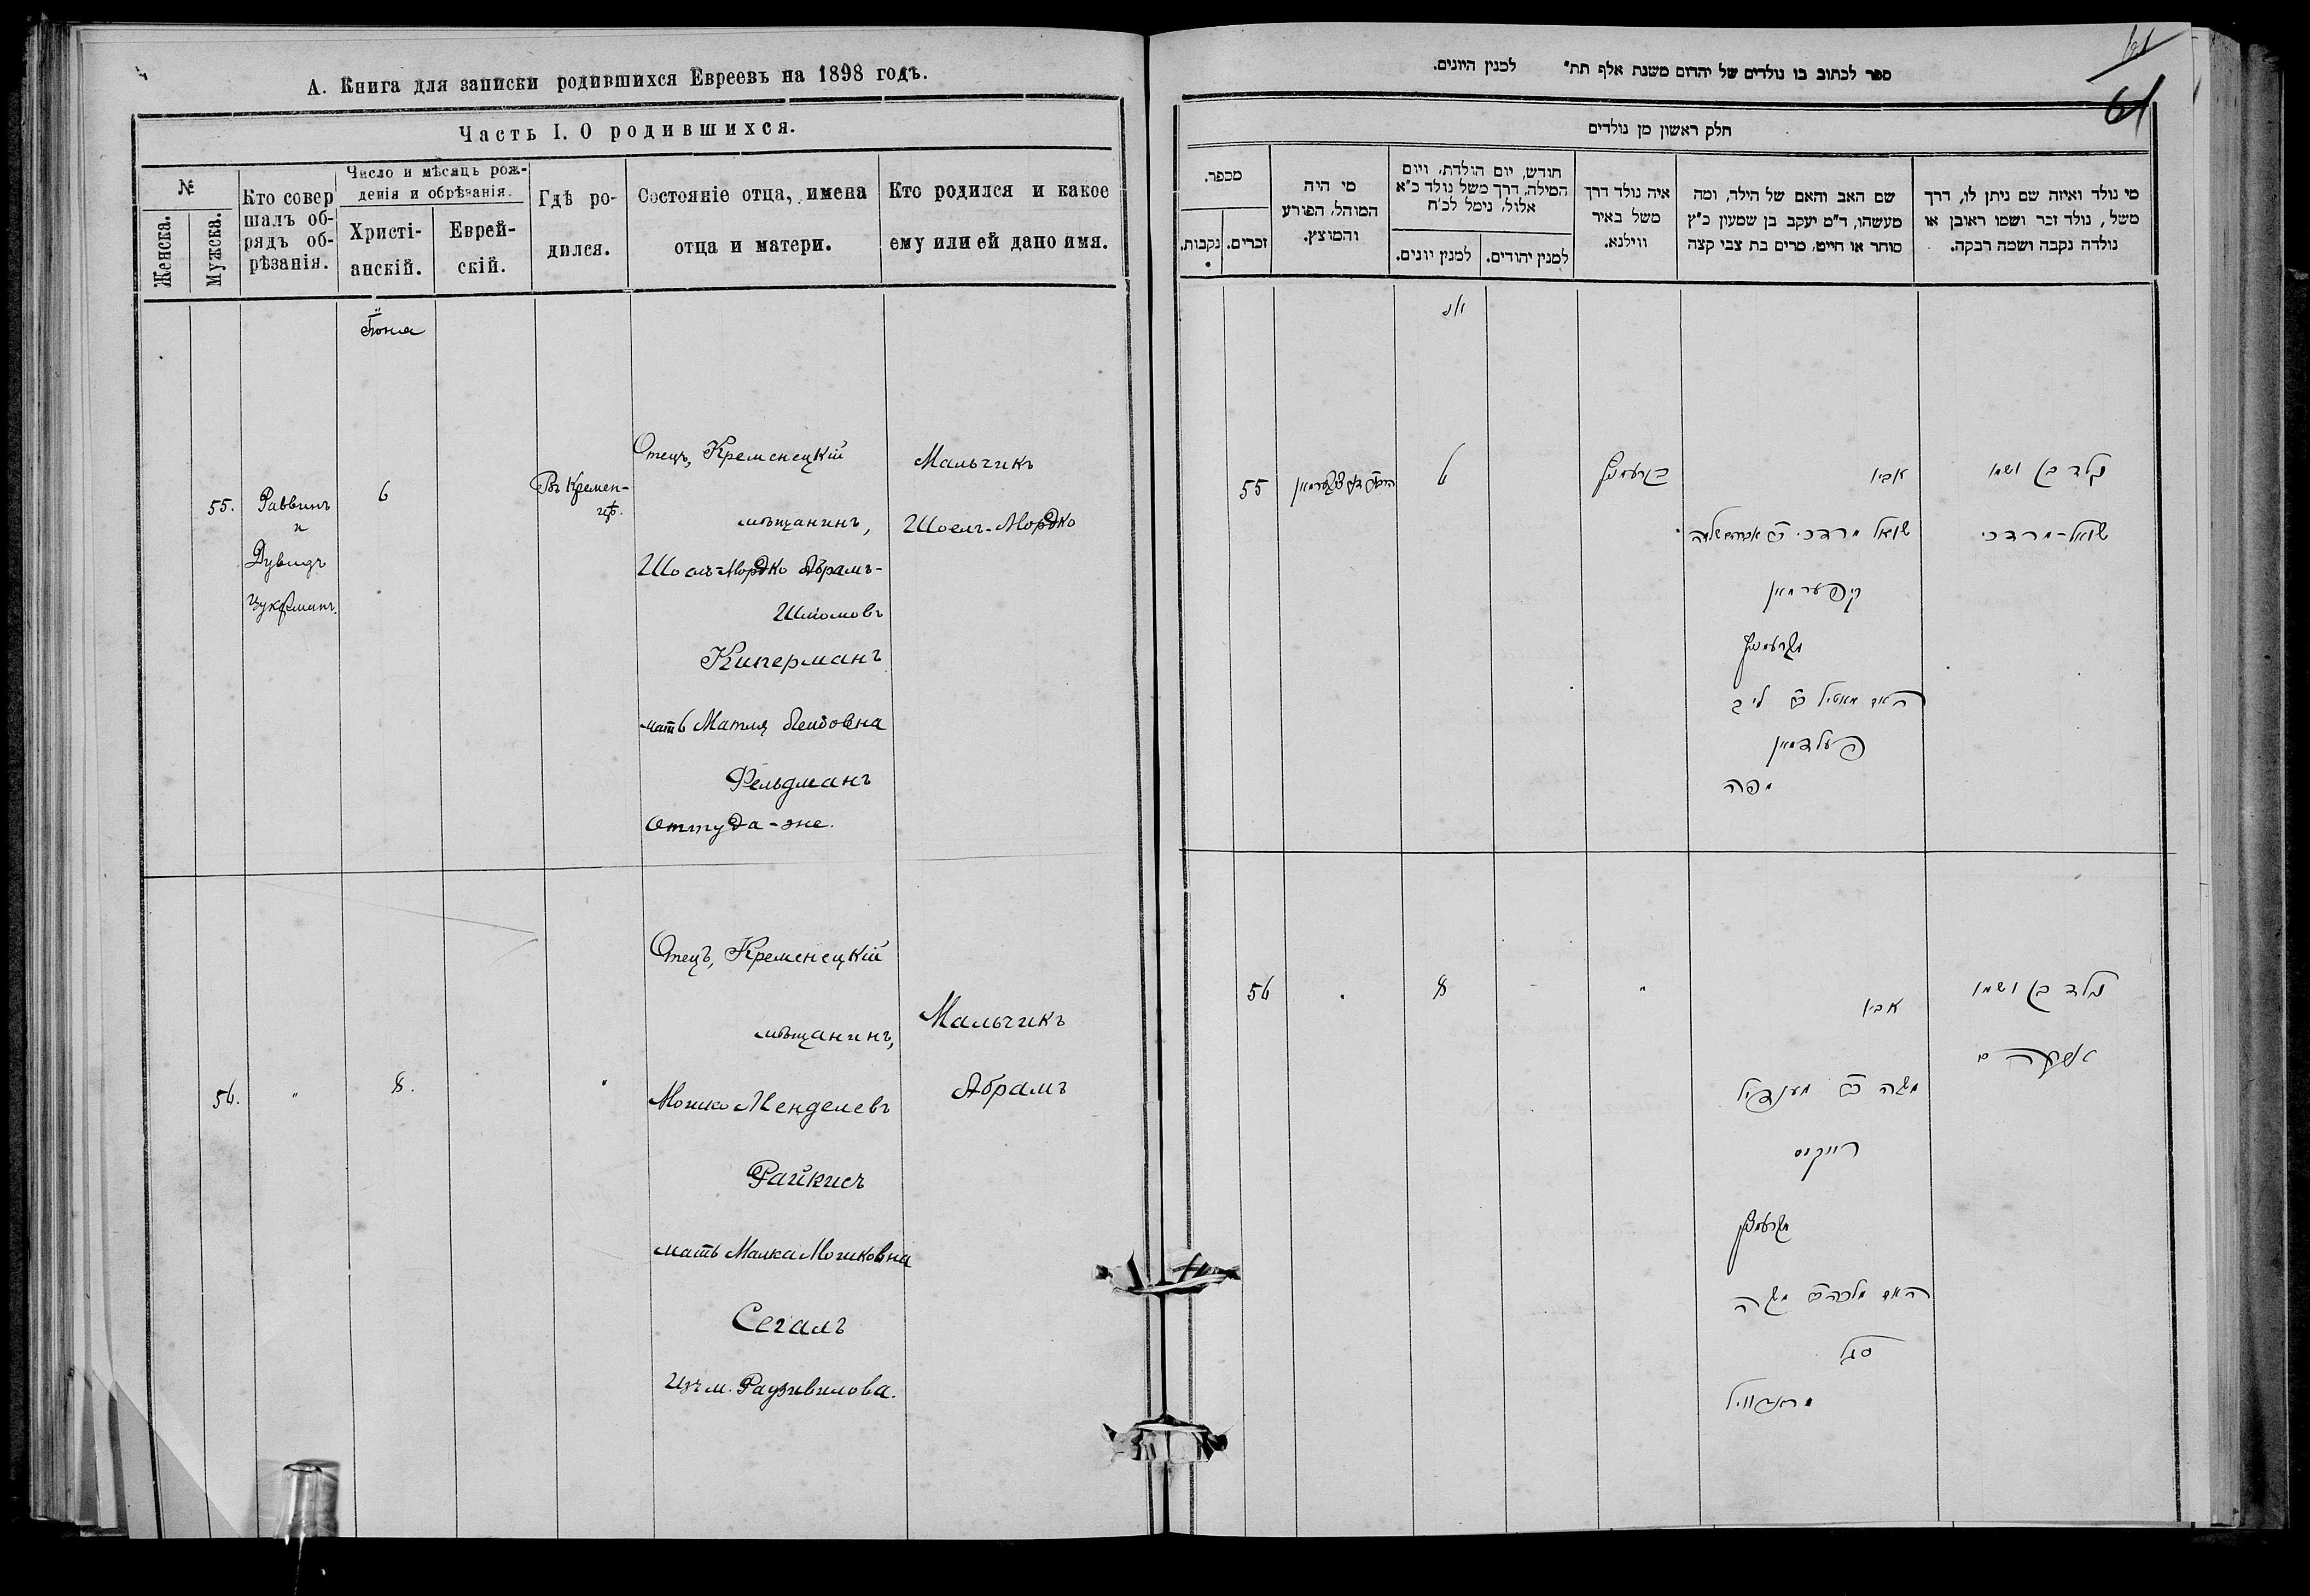 А. Книга для записки родившихся Евреевъ на 1898 годъ.
Часть I. О родившихся.
№
Женска.
Мужска.
Кто совер
шалъ об-
рядъ об-
рѣзанія.
Число и мѣсяцъ рож-
денія и обрѣзанія.
Христі-
анскій.
Еврей-
скій.
Гдѣ ро-
дился.
Состояніе отца, имена
отца и матери.
Кто родился и какое
ему или ей дано имя.
55.
Раввинъ
и
Дувидъ
Цукерманъ.
6
Въ Кремен-
цѣ.
Отецъ, Кременецкій
мѣщанинъ,
Шоелъ-Мордко Абрамъ-
Шліомовъ
Киперманъ
мать Матля Лейбовна
Фельдманъ
Оттуда-же.
Мальчикъ
Шоелъ-Мордко
56.
"
8.
"
Отецъ, Кременецкій
мѣщанинъ,
Мошко Менделевъ
Райкисъ
мать Малка Мошковна
Сегалъ
Изъ м. Радзивилова.
Мальчикъ
Абрамъ
61
ספר לכתוב בו נולדים של יהדום משנת אלף תת" למנין היונים.
חלק ראשון מן נולדים
מי נולד ואיזה שם ניתן לו, דרך
משל, נולד זכר ושמו ראובן או
נולדה נקבה ושמה רבקה.
שם האב והאם של הילד, ומה
מעשהו, ד"מ יעקב בן שמעון כ"ץ
סוחר או חייט, מרים בת צבי קצה
איה נולד דרך
משל באיר
ווילנא.
חודש, יום הולדת, ויום
המילה, דרך משל נולד כ"א
אלול, נימל לכ"ח
למנין יהודים.
למנין יונים.
מי היה
המוהל, הפורע
והמוצץ.
מספר.
זכרים.
נקבות.
נולד בן ושמו
שואל-מרדכי
אביו
שואל מרדכי ב"ר אברהם שלמה
קיפערמאן
מקרעמניץ
האם מאטיל ב"ר ליב
פעלדמאן
מפה
בקרעמניץ
6
55
נולד בן ושמו
אביו
משה ב"ר מענדיל
רייקיס
מקרעמניץ
האם מלכה ב"ר משה
סגל
"
8
56